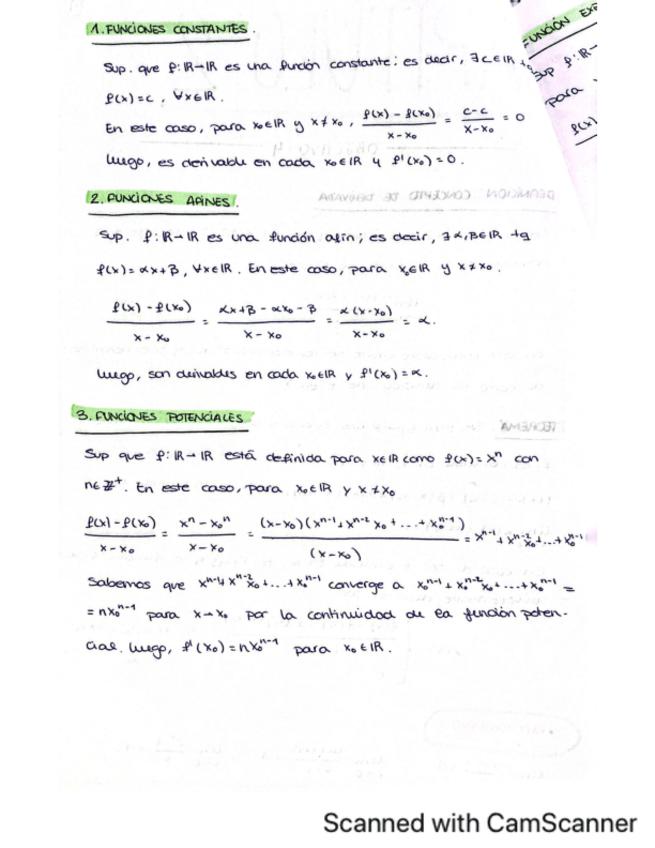 1. FUNCIONES CONSTANTES.
Sup. que f: ℝ→ℝ es una función constante; es decir, ∃c∈ℝ tq
f(x)=c, ∀x∈ℝ.
En este caso, para x₀∈ℝ y x≠x₀, (f(x) - f(x₀))/(x - x₀) = (c-c)/(x-x₀) = 0
luego, es derivable en cada x₀∈ℝ y f'(x₀)=0.
2. FUNCIONES AFINES.
Sup. f: ℝ→ℝ es una función afín; es decir, ∃ α,β∈ℝ tq
f(x)=αx+β, ∀x∈ℝ. En este caso, para x₀∈ℝ y x≠x₀.
(f(x) - f(x₀))/(x - x₀) = (αx+β - αx₀ - β)/(x - x₀) = α(x-x₀)/(x-x₀) = α.
luego, son derivables en cada x₀∈ℝ y f'(x₀)=α.
3. FUNCIONES POTENCIALES
Sup que f: ℝ→ℝ está definida para x∈ℝ como f(x)=xⁿ con
n∈ℤ⁺. En este caso, para x₀∈ℝ y x≠x₀
(f(x)-f(x₀))/(x-x₀) = (xⁿ-x₀ⁿ)/(x-x₀) = (x-x₀)(xⁿ⁻¹+xⁿ⁻²x₀+...+x₀ⁿ⁻¹)/(x-x₀) = xⁿ⁻¹+xⁿ⁻²x₀+...+x₀ⁿ⁻¹
Sabemos que xⁿ⁻¹+xⁿ⁻²x₀+...+x₀ⁿ⁻¹ converge a x₀ⁿ⁻¹+x₀ⁿ⁻²x₀+...+x₀ⁿ⁻¹ =
= nx₀ⁿ⁻¹ para x→x₀ por la continuidad de la función poten-
cial. luego, f'(x₀)=nx₀ⁿ⁻¹ para x₀∈ℝ.
FUNCIÓN EXP
Sup f: ℝ→
para
f(x)
Scanned with CamScanner